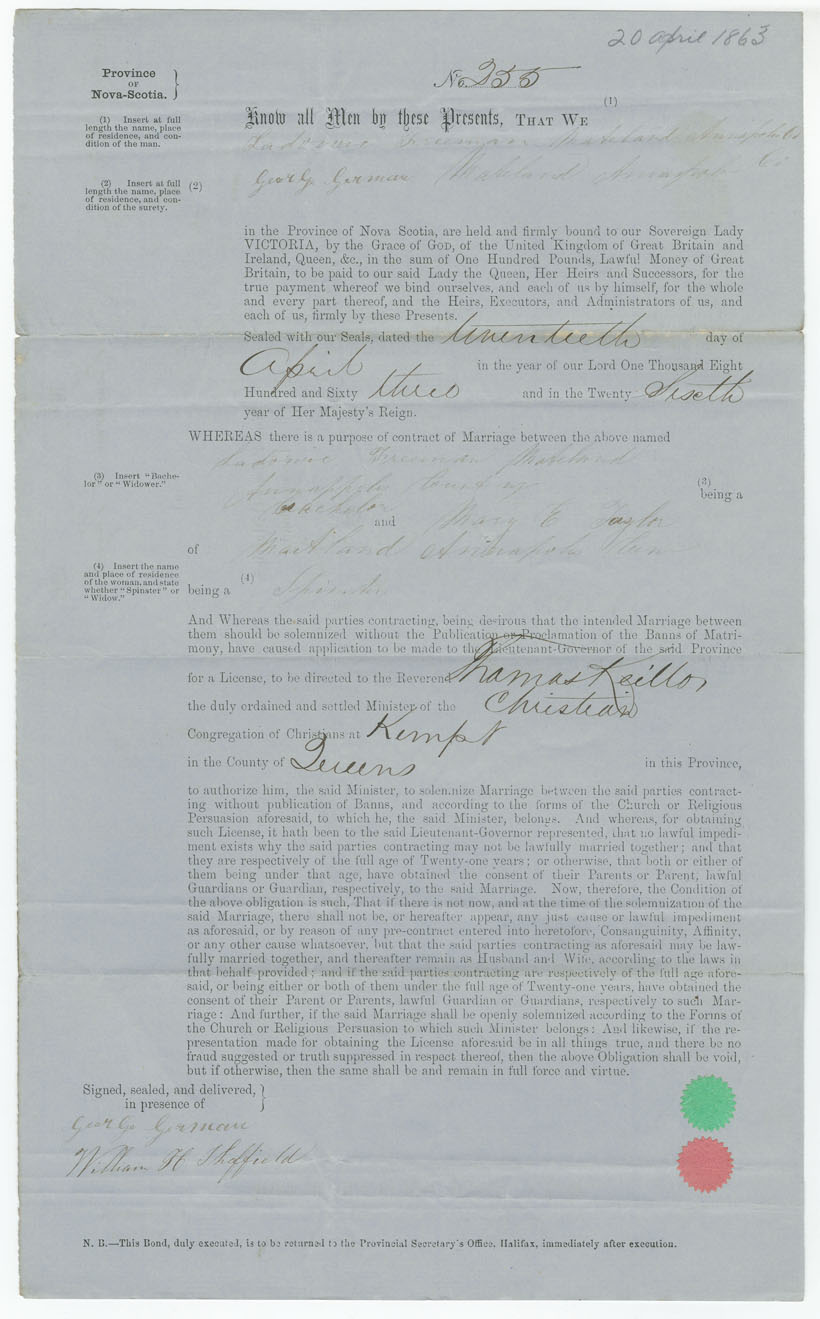 20 april 1863
Province
OF
Nova-Scotia. }
No. 255
(1)
Know all Men by these Presents, THAT WE
(1) Insert at full
length the name, place
of residence, and con-
dition of the man.
Freeman Maitland Annapolis Co
(2) Insert at full
length the name, place
of residence, and con-
dition of the surety.
(2)
George Gorman Maitland Annapolis Co
in the Province of Nova Scotia, are held and firmly bound to our Sovereign Lady
VICTORIA, by the Grace of GOD, of the United Kingdom of Great Britain and
Ireland, Queen, &c., in the sum of One Hundred Pounds, Lawful Money of Great
Britain, to be paid to our said Lady the Queen, Her Heirs and Successors, for the
true payment whereof we bind ourselves, and each of us by himself, for the whole
and every part thereof, and the Heirs, Executors, and Administrators of us, and
each of us, firmly by these Presents.
Sealed with our Seals, dated the twentieth day of
April in the year of our Lord One Thousand Eight
Hundred and Sixty three and in the Twenty Sixth
year of Her Majesty's Reign.
WHEREAS there is a purpose of contract of Marriage between the above named
Freeman Maitland
(3) Insert "Bache-
lor" or "Widower."
(3)
being a
Bachelor
and Mary E Taylor
of Maitland Annapolis
(4) Insert the name
and place of residence
of the woman, and state
whether "Spinster" or
"Widow."
(4)
being a Spinster
And Whereas the said parties contracting, being desirous that the intended Marriage between
them should be solemnized without the Publication or Proclamation of the Banns of Matri-
mony, have caused application to be made to the Lieutenant-Governor of the said Province
for a License, to be directed to the Reverend Thomas Keillor
the duly ordained and settled Minister of the Christian
Congregation of Christians at Kempt
in the County of Queens in this Province,
to authorize him, the said Minister, to solemnize Marriage between the said parties contract-
ing without publication of Banns, and according to the forms of the Church or Religious
Persuasion aforesaid, to which he, the said Minister, belongs. And whereas, for obtaining
such License, it hath been to the said Lieutenant-Governor represented, that no lawful impedi-
ment exists why the said parties contracting may not be lawfully married together; and that
they are respectively of the full age of Twenty-one years; or otherwise, that both or either of
them being under that age, have obtained the consent of their Parents or Parent, lawful
Guardians or Guardian, respectively, to the said Marriage. Now, therefore, the Condition of
the above obligation is such, That if there is not now, and at the time of the solemnization of the
said Marriage, there shall not be, or hereafter appear, any just cause or lawful impediment
as aforesaid, or by reason of any pre-contract entered into heretofore, Consanguinity, Affinity,
or any other cause whatsoever, but that the said parties contracting as aforesaid may be law-
fully married together, and thereafter remain as Husband and Wife, according to the laws in
that behalf provided; and if the said parties contracting are respectively of the full age afore-
said, or being either or both of them under the full age of Twenty-one years, have obtained the
consent of their Parent or Parents, lawful Guardian or Guardians, respectively to such Mar-
riage: And further, if the said Marriage shall be openly solemnized according to the Forms of
the Church or Religious Persuasion to which such Minister belongs: And likewise, if the re-
presentation made for obtaining the License aforesaid be in all things true, and there be no
fraud suggested or truth suppressed in respect thereof, then the above Obligation shall be void,
but if otherwise, then the same shall be and remain in full force and virtue.
Signed, sealed, and delivered,
in presence of }
George Gorman
William H Sheffield
N. B.—This Bond, duly executed, is to be returned to the Provincial Secretary's Office, Halifax, immediately after execution.